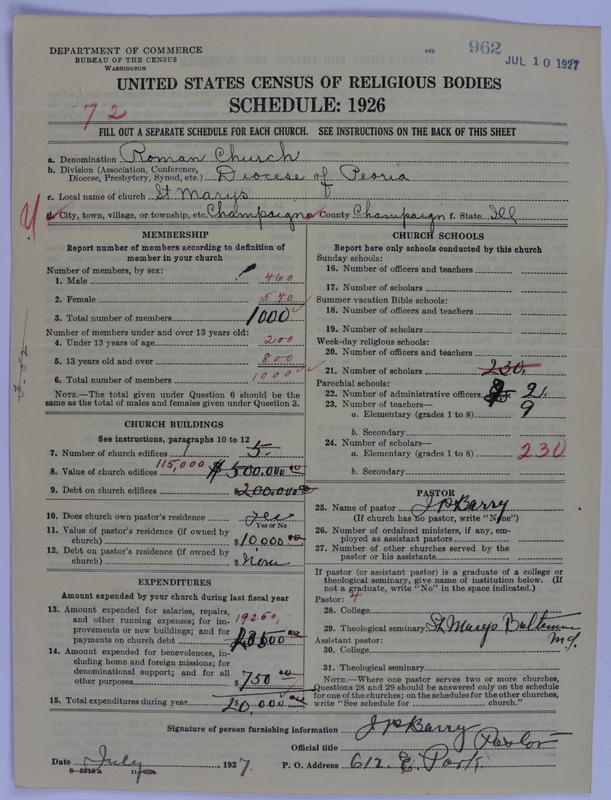 DEPARTMENT OF COMMERCE
BUREAU OF THE CENSUS
WASHINGTON
962
JUL 10 1927
UNITED STATES CENSUS OF RELIGIOUS BODIES
SCHEDULE: 1926
72
FILL OUT A SEPARATE SCHEDULE FOR EACH CHURCH. SEE INSTRUCTIONS ON THE BACK OF THIS SHEET
a. Denomination Roman Church
b. Division (Association, Conference,
Diocese, Presbytery, Synod, etc.) Diocese of Peoria
c. Local name of church St Marys
d. City, town, village, or township, etc. Champaign County Champaign f. State Ill
MEMBERSHIP
Report number of members according to definition of
member in your church
Number of members, by sex:
1. Male 460
2. Female 540
3. Total number of members 1000
Number of members under and over 13 years old:
4. Under 13 years of age 200
5. 13 years old and over 800
6. Total number of members 1000
NOTE.—The total given under Question 6 should be
the same as the total of males and females given under Question 3.
CHURCH BUILDINGS
See instructions, paragraphs 10 to 12
7. Number of church edifices 1 5.
8. Value of church edifices 115,000 $ 500.000 00
9. Debt on church edifices 200.000
10. Does church own pastor's residence yes
Yes or No
11. Value of pastor's residence (if owned by
church) $ 10.000 00
12. Debt on pastor's residence (if owned by
church) $ None
EXPENDITURES
Amount expended by your church during last fiscal year
13. Amount expended for salaries, repairs,
and other running expenses; for im-
provements or new buildings; and for
payments on church debt 19250,
14. Amount expended for benevolences, in-
cluding home and foreign missions; for
denominational support; and for all
other purposes $ 750 00
15. Total expenditures during year $ 20,000 00
CHURCH SCHOOLS
Report here only schools conducted by this church
Sunday schools:
16. Number of officers and teachers
17. Number of scholars
Summer vacation Bible schools:
18. Number of officers and teachers
19. Number of scholars
Week-day religious schools:
20. Number of officers and teachers
21. Number of scholars 230.
Parochial schools:
22. Number of administrative officers 2.
23. Number of teachers—
a. Elementary (grades 1 to 8) 9
b. Secondary
24. Number of scholars—
a. Elementary (grades 1 to 8) 230
b. Secondary
PASTOR
25. Name of pastor J P Barry
(If church has no pastor, write "None")
26. Number of ordained ministers, if any, em-
ployed as assistant pastors
27. Number of other churches served by the
pastor or his assistants
If pastor (or assistant pastor) is a graduate of a college or
theological seminary, give name of institution below. (If
not a graduate, write "No" in the space indicated.)
Pastor: 4
28. College
29. Theological seminary St Marys Baltimore
Md.
Assistant pastor:
30. College
31. Theological seminary
NOTE.—Where one pastor serves two or more churches,
Questions 28 and 29 should be answered only on the schedule
for one of the churches; on the schedules for the other churches,
write "See schedule for church."
Signature of person furnishing information J P Barry
Official title Pastor
Date July, 1927
P. O. Address 612 E. Park